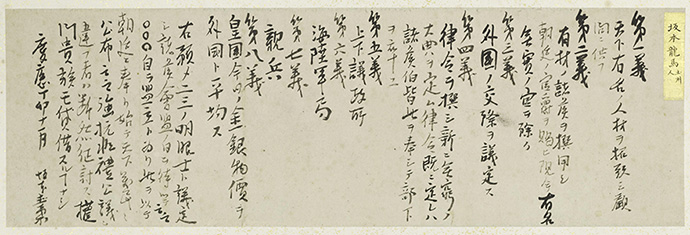 坂本龍馬 土州人
第一義
天下有名ノ人材ヲ招致シ顧
問ニ供フ
第二義
有材ノ諸侯ヲ撰用シ
朝廷ノ官爵ヲ賜ヒ現今有名
無実ノ官ヲ除ク
第三義
外国ノ交際ヲ議定ス
第四義
律令ヲ撰シ新ニ無窮ノ
大典ヲ定ム律令既ニ定レハ
諸侯伯皆此ヲ奉シテ部下
ヲ率ユ
第五義
上下議政所
第六義
海陸軍局
第七義
親兵
第八義
皇国今日ノ金銀物價ヲ
外国ト平均ス
右預メ二三ノ明眼士ト議定
シ諸侯會盟ノ日ヲ待ツテ云云
○○○自ラ盟主ト為リ此ヲ以テ
朝廷ニ奉リ始テ天下萬民ニ
公布云云強抗非禮公議ニ
違フ者ハ断然征討ス權
門貴族モ貸借スルコトナシ
慶應丁卯十一月 坂本直柔